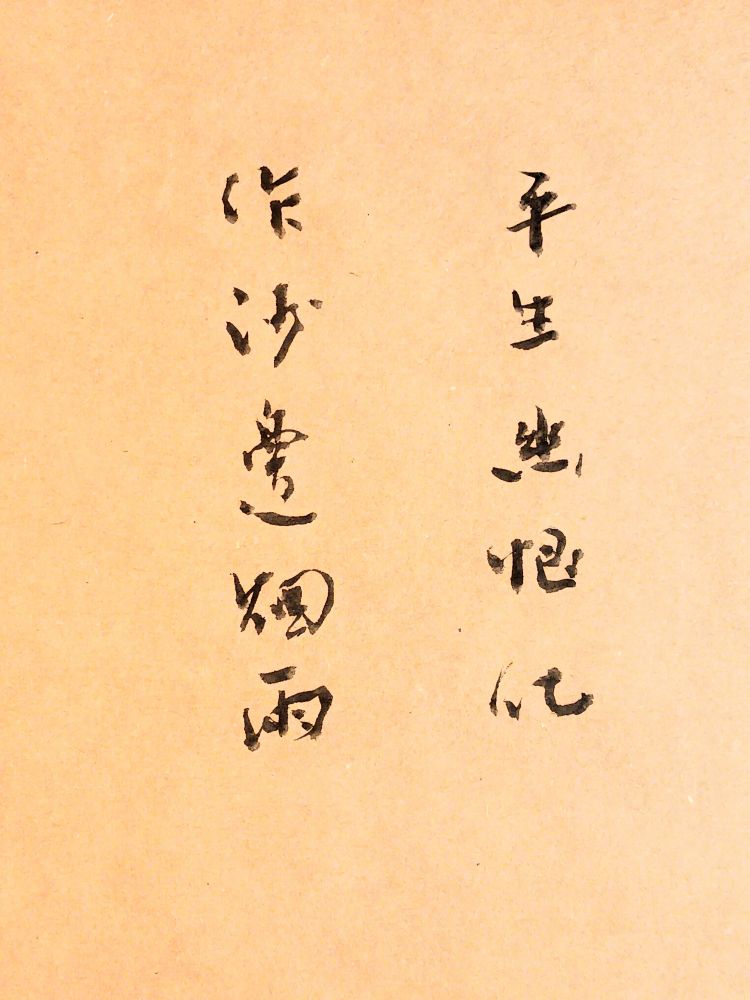 平生幽恨化
作沙邊烟雨